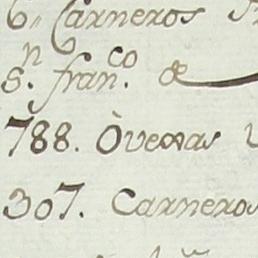 6,, Carneros
S.n fran.co de
788. Òvexas
307. Carneros